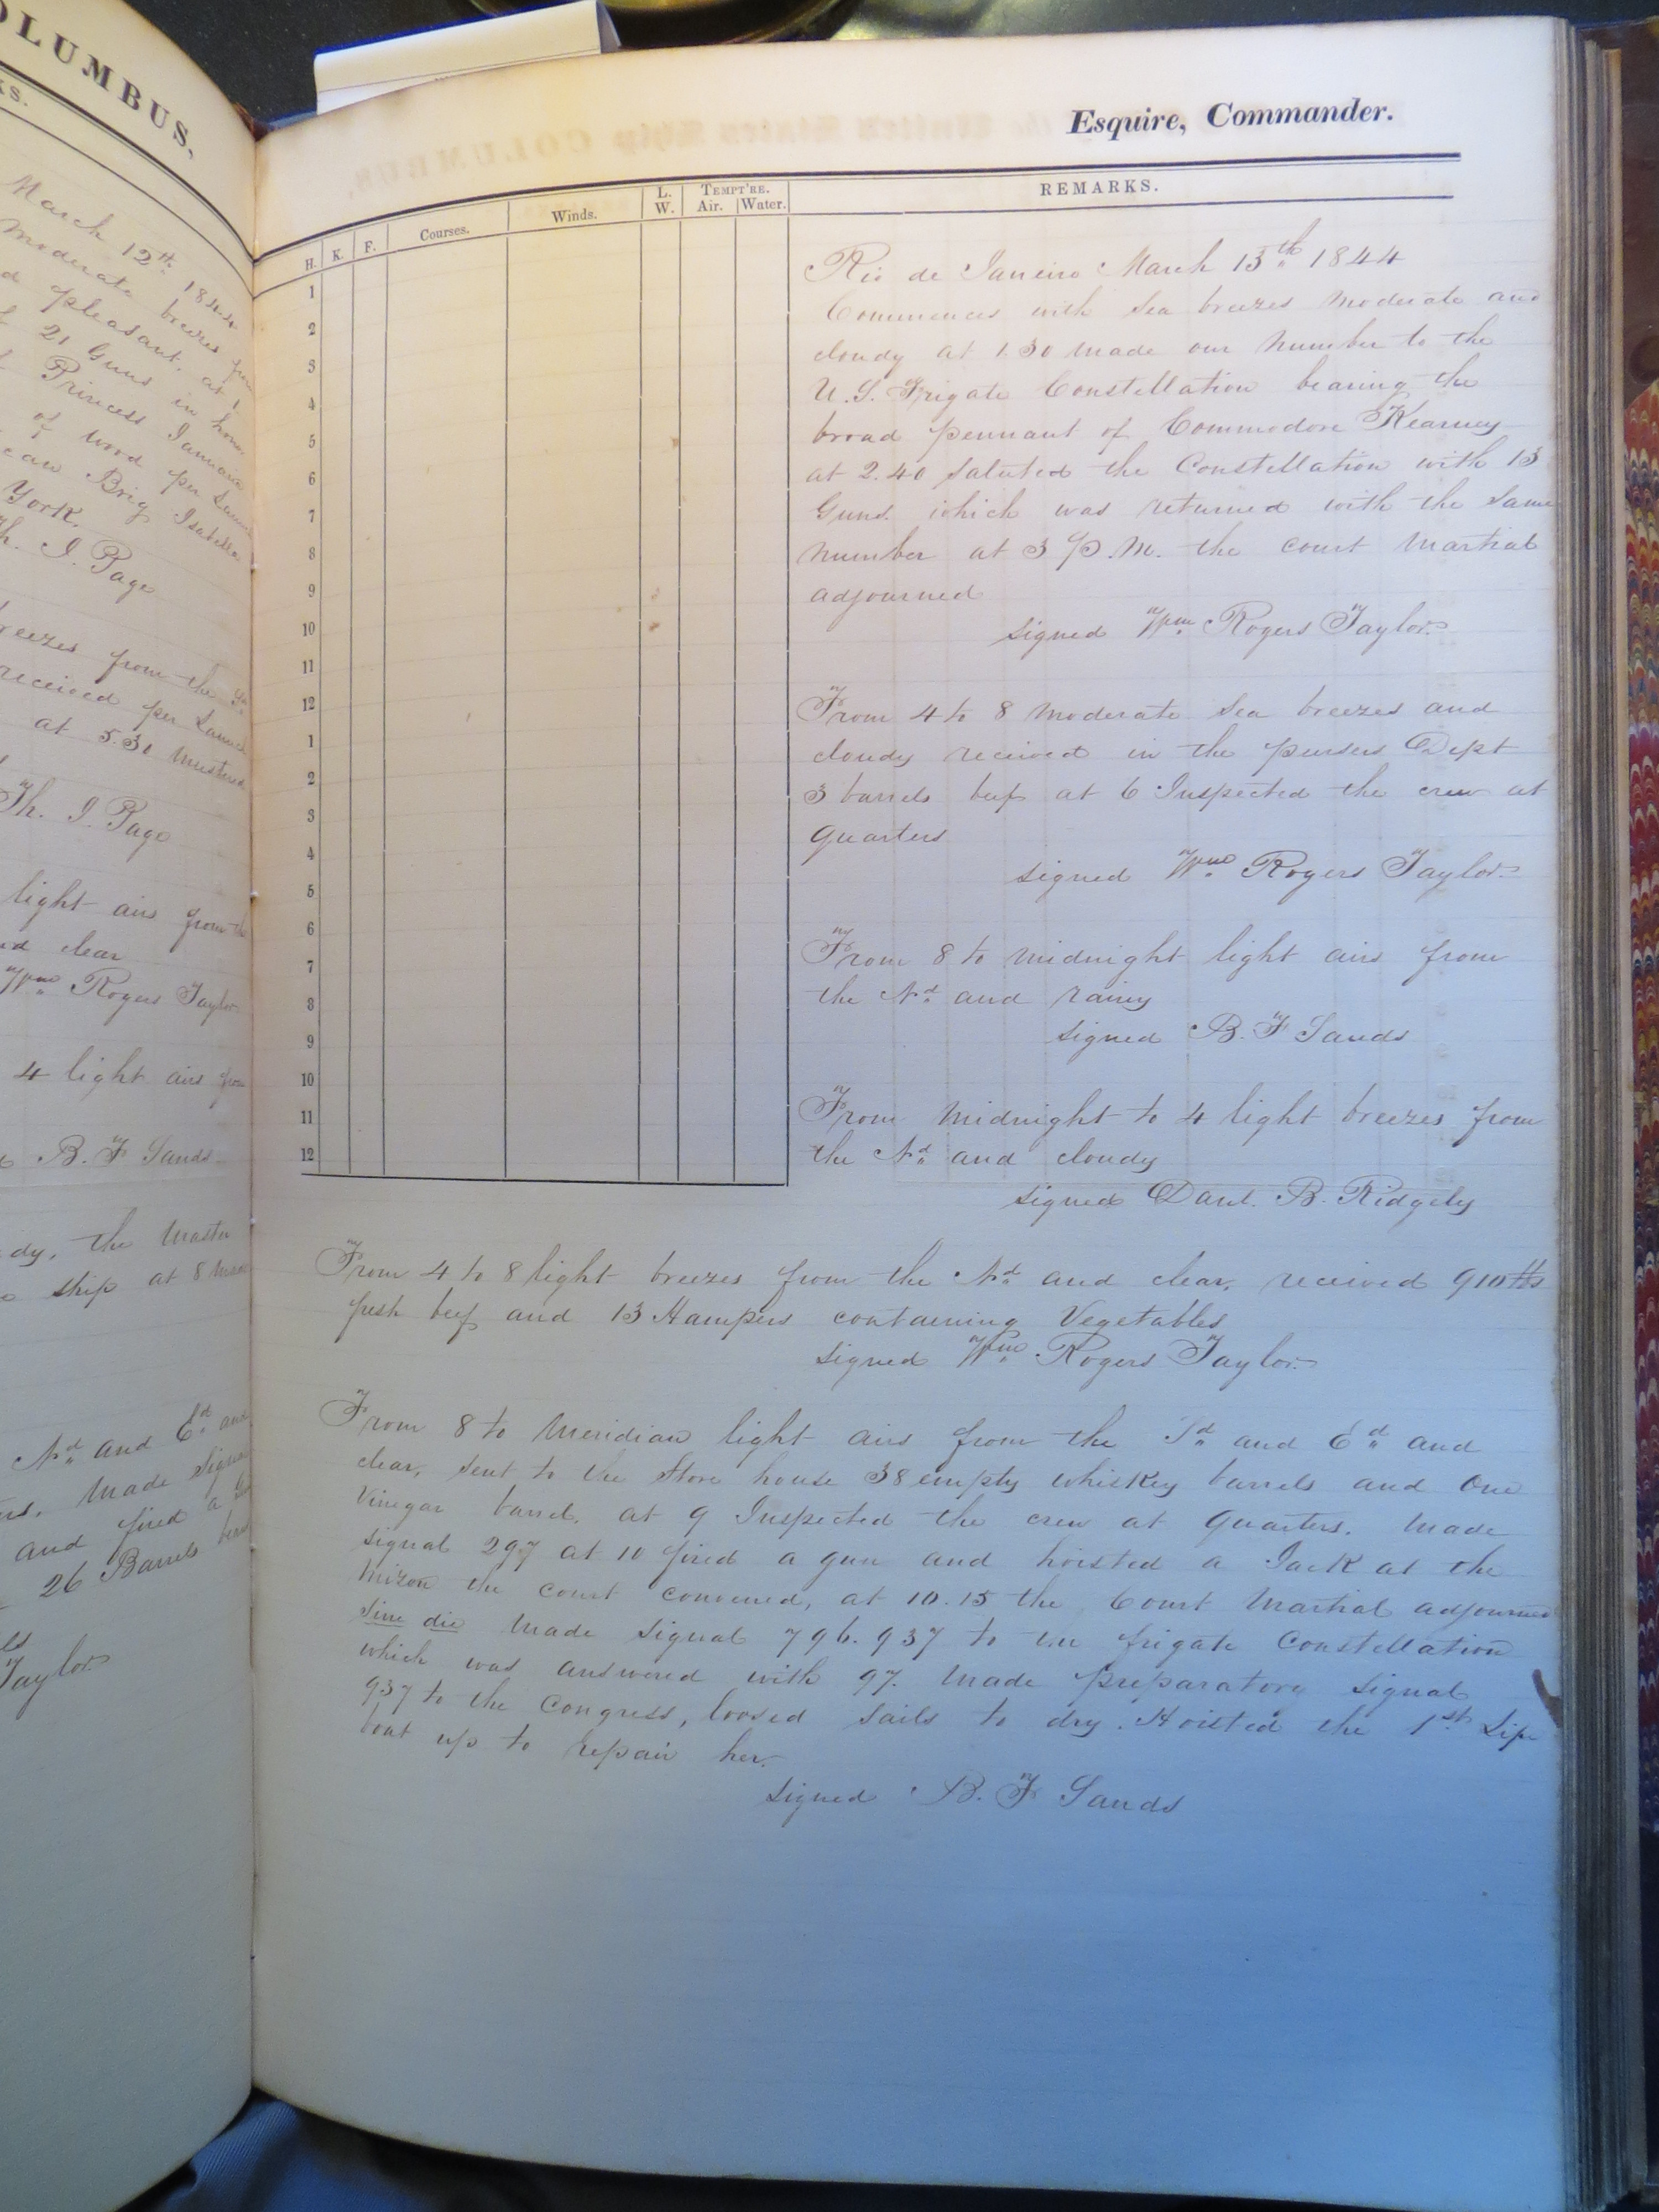 OLUMBUS,
KS.
March 12th 1844
moderate breezes from
d pleasant, at 1
21 Guns in hon
Princess Januaria
of wood per Laun
can Brig Isabella
York.
Th. J. Page
breezes from the
received per Launch
at 5.30 mustered
Th. J. Page
light airs from the
and clear
Wm Rogers Taylor
4 light airs from
B. F Sands
dy, the Master
ship at 8 made
Nd and Ed and
rs. Made signal
and fired a
26 Barrels
Taylor
Esquire, Commander.
H. K. F. Courses. Winds. L. W. TEMPT'RE. Air. Water. REMARKS.
1
2
3
4
5
6
7
8
9
10
11
12
1
2
3
4
5
6
7
8
9
10
11
12
Rio de Janeiro March 13th 1844
Commences with Sea breezes moderate and
cloudy at 1.30 made our number to the
U.S. Frigate Constellation bearing the
broad pennant of Commodore Kearney
at 2.40 saluted the Constellation with 13
Guns which was returned with the same
number at 3 P.M. the court Martial
adjourned
signed Wm Rogers Taylor
From 4 to 8 moderate sea breezes and
cloudy received in the pursers Dept
3 barrels beef at 6 Inspected the crew at
quarters
signed Wm Rogers Taylor
From 8 to midnight light airs from
the Nd and rainy
signed B. F Sands
From Midnight to 4 light breezes from
the Nd and cloudy
signed Danl. B. Ridgely
From 4 to 8 light breezes from the Nd and clear, received 910 lbs
fresh beef and 13 Hampers containing Vegetables
signed Wm Rogers Taylor
From 8 to Meridian light airs from the Sd and Ed and
clear, sent to the Store house 38 empty whiskey barrels and One
Vinegar barrel. at 9 Inspected the crew at Quarters. Made
signal 297 at 10 fired a gun and hoisted a Jack at the
Mizon the court convened, at 10.15 the Court Martial adjourned
sine die Made signal 796. 937 to the frigate Constellation
which was answered with 97. Made preparatory signal
937 to the Congress, loosed sails to dry. Hoisted the 1st Life
boat up to repair her.
signed B. F Sands